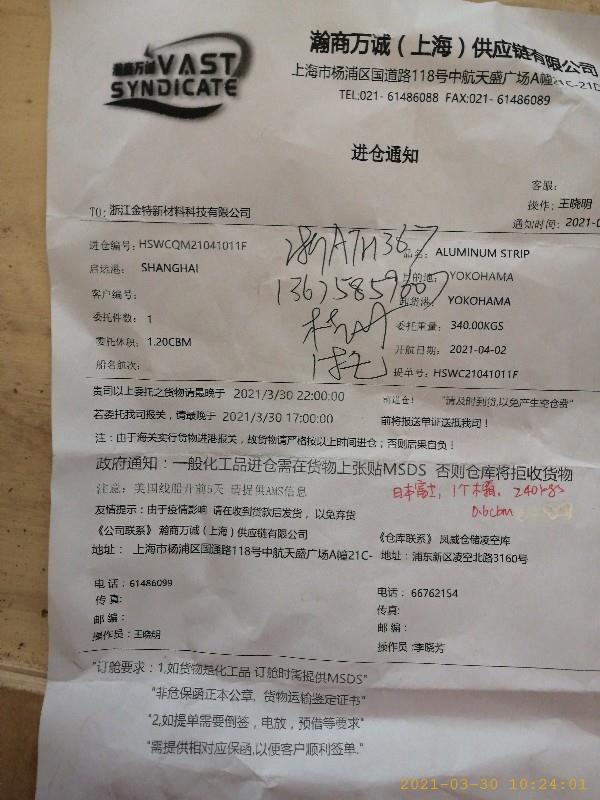 瀚商万诚 VAST
SYNDICATE
瀚商万诚（上海）供应链有限公司
上海市杨浦区国道路118号中航天盛广场A幢21C-21D
TEL:021- 61486088 FAX:021- 61486089
进仓通知
客服：
TO: 浙江金特新材料科技有限公司
操作：王晓明
通知时间：2021-0
进仓编号：HSWCQM21041011F
品名：ALUMINUM STRIP
启运港： SHANGHAI
目的港： YOKOHAMA
客户编号：
卸货港： YOKOHAMA
委托件数： 1
委托重量： 340.00KGS
委托体积： 1.20CBM
开航日期： 2021-04-02
船名航次：
提单号：HSWC21041011F
贵司以上委托之货物请最晚于 2021/3/30 22:00:00 前进仓！ "请及时到货,以免产生空仓费"
若委托我司报关，请最晚于 2021/3/30 17:00:00 前将报送单证送抵我司！
注：由于海关实行货物进港报关，故货物请严格按以上时间进仓；否则后果自负！
政府通知：一般化工品进仓需在货物上张贴MSDS 否则仓库将拒收货物
注意：美国线船开前5天 请提供AMS信息
日本富士，1个木箱，240kgs
0.6cbm
友情提示：由于疫情影响 请在收到货款后发货，以免弃货
《公司联系》 瀚商万诚（上海）供应链有限公司
《仓库联系》 凤威仓储凌空库
地址： 上海市杨浦区国通路118号中航天盛广场A幢21C-
地址：浦东新区凌空北路3160号
电话：61486099
电话： 66762154
传真：
传真：
邮编：
邮编：
操作员：王晓明
操作员：李晓芳
"订舱要求：1,如货物是化工品 订舱时需提供MSDS"
"非危保函正本公章，货物运输鉴定证书"
"2,如提单需要倒签，电放，预借等要求"
"需提供相对应保函,以便客户顺利签单."
2021-03-30 10:24:01